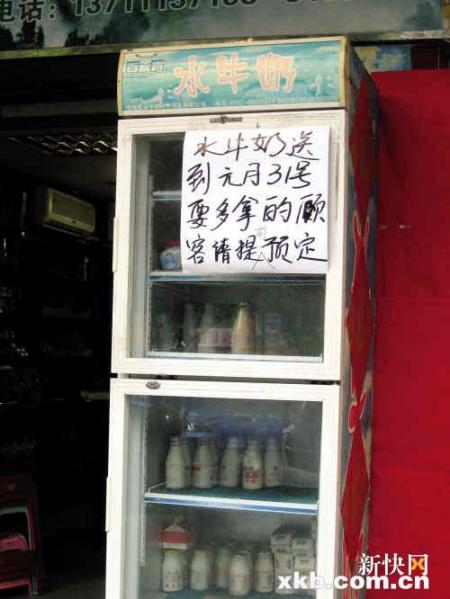 电话:
百富露
水牛奶
水牛奶送
到元月31号
要多拿的顾
客请提前预定
新快网
xkb.com.cn